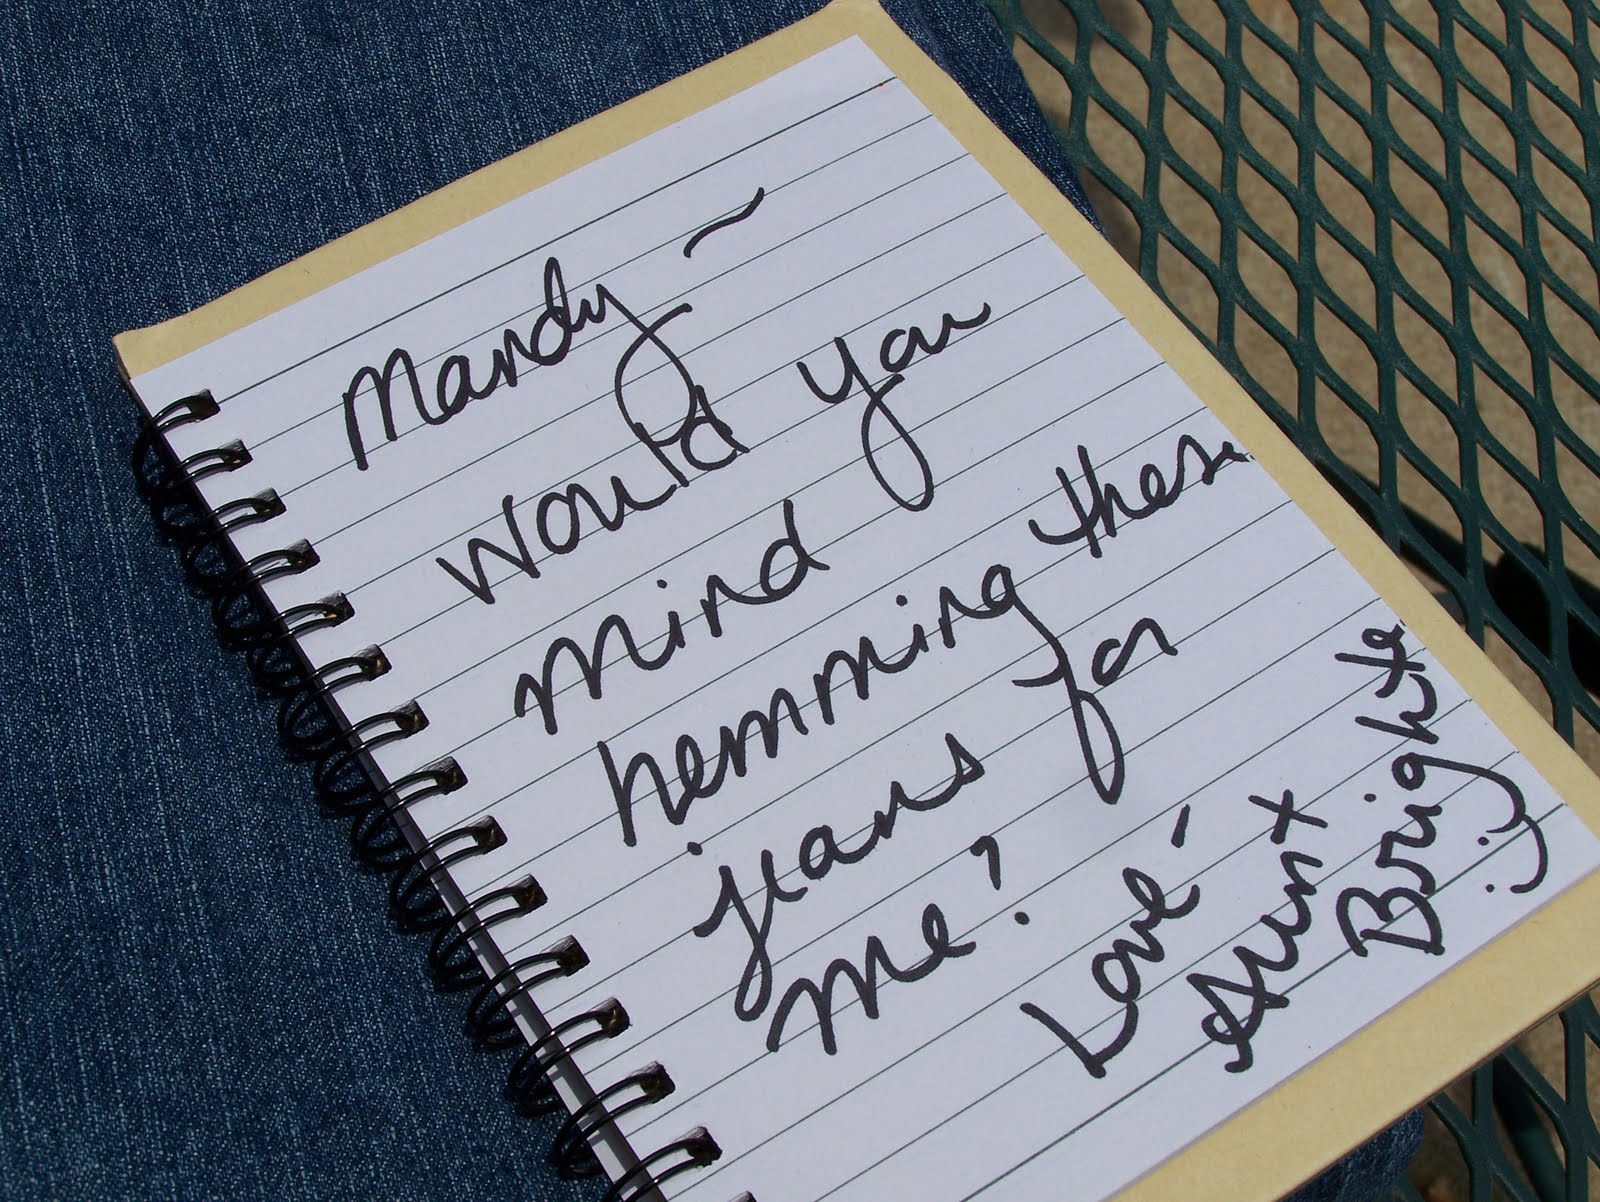 Mandy ~
would you
mind
hemming these
jeans for
me?
Love -
Aunt
Brighte
:)